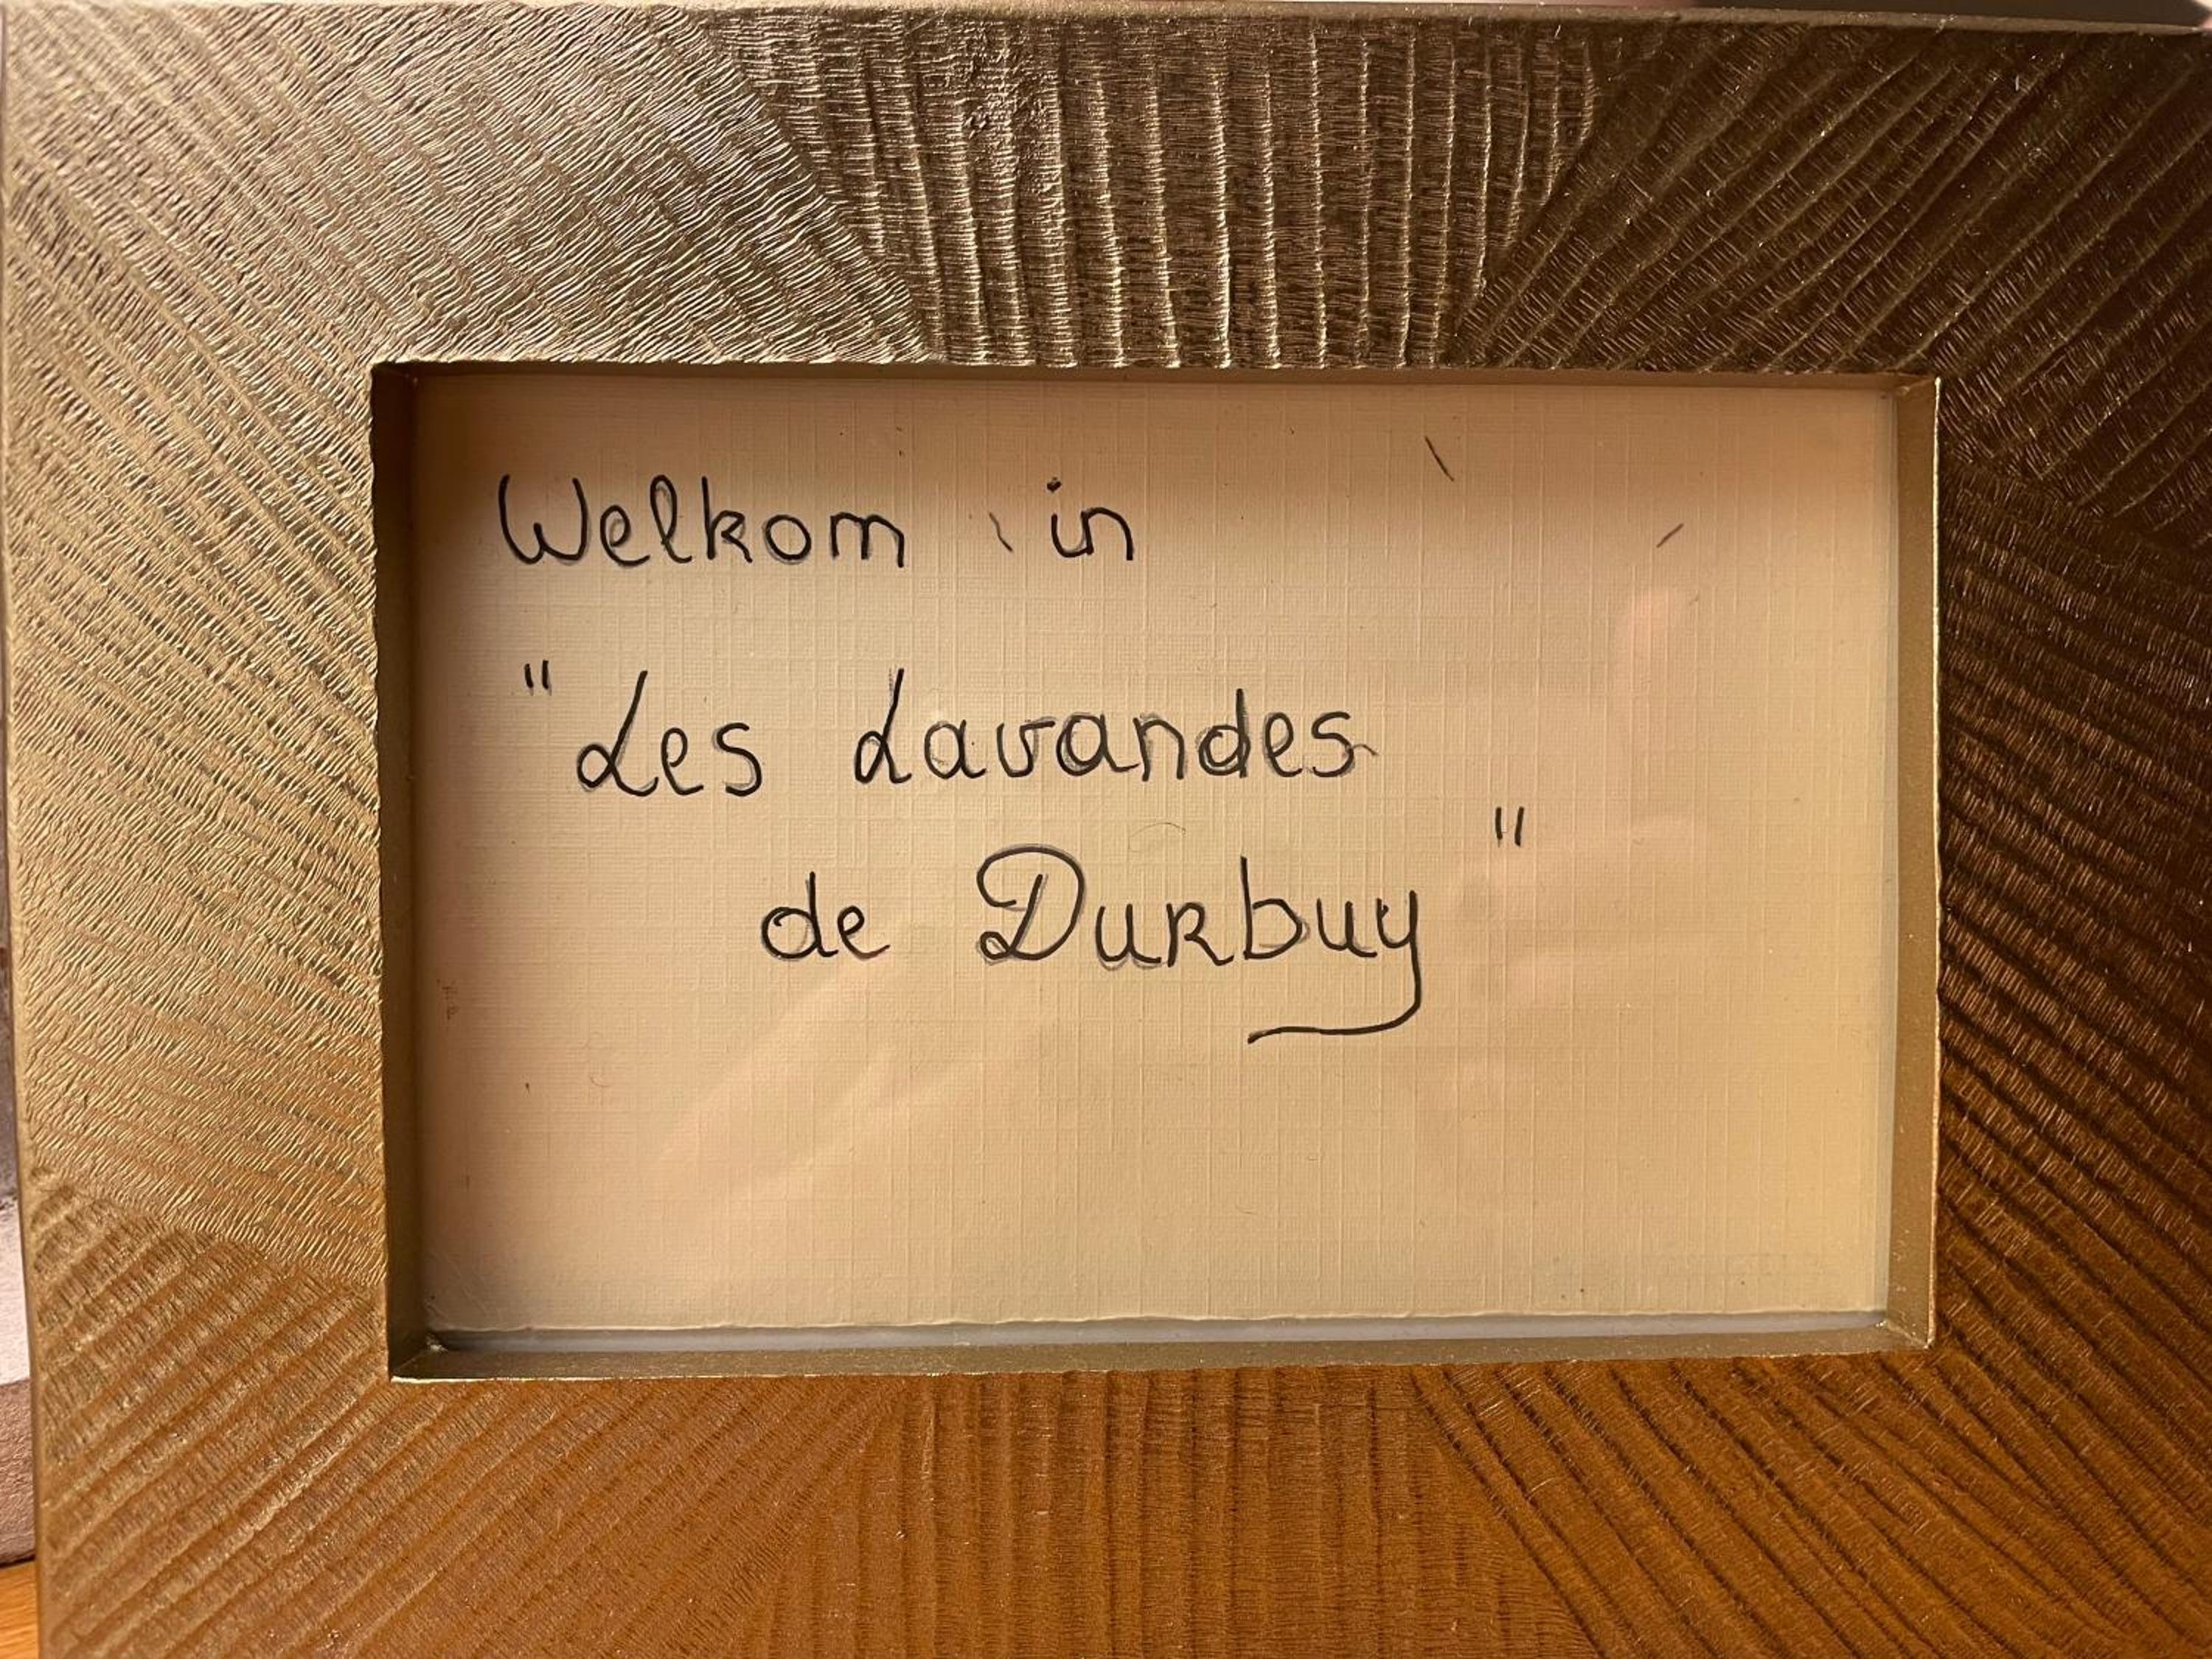 Welkom in
"Les Lavandes
de Durbuy"